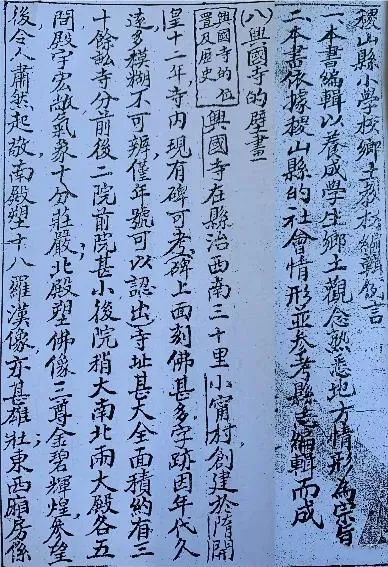 稷山縣小學校鄉土教材編輯後言
一本書編輯以養成學生鄉土觀念熟悉地方情形為宗旨
二本書依據稷山縣的社會情形並參考縣志編輯而成
(八)興國寺的壁畫
興國寺的位
置及歷史
興國寺在縣治西南三十里小甯村,創建於隋開
皇十二年,寺内現有碑可考,碑上面刻佛甚多,字跡因年代久
遠,多模糊不可辨,僅年號可以認出,寺址甚大,全面積約有三
十餘畝,寺分前後二院,前院甚小,後院稍大,南北兩大殿各五
間,殿宇宏敞,氣象十分莊嚴,北殿塑佛像三尊,金碧輝煌,參望
後令人肅然起敬,南殿塑十八羅漢像,亦甚雄壯,東西廂房係